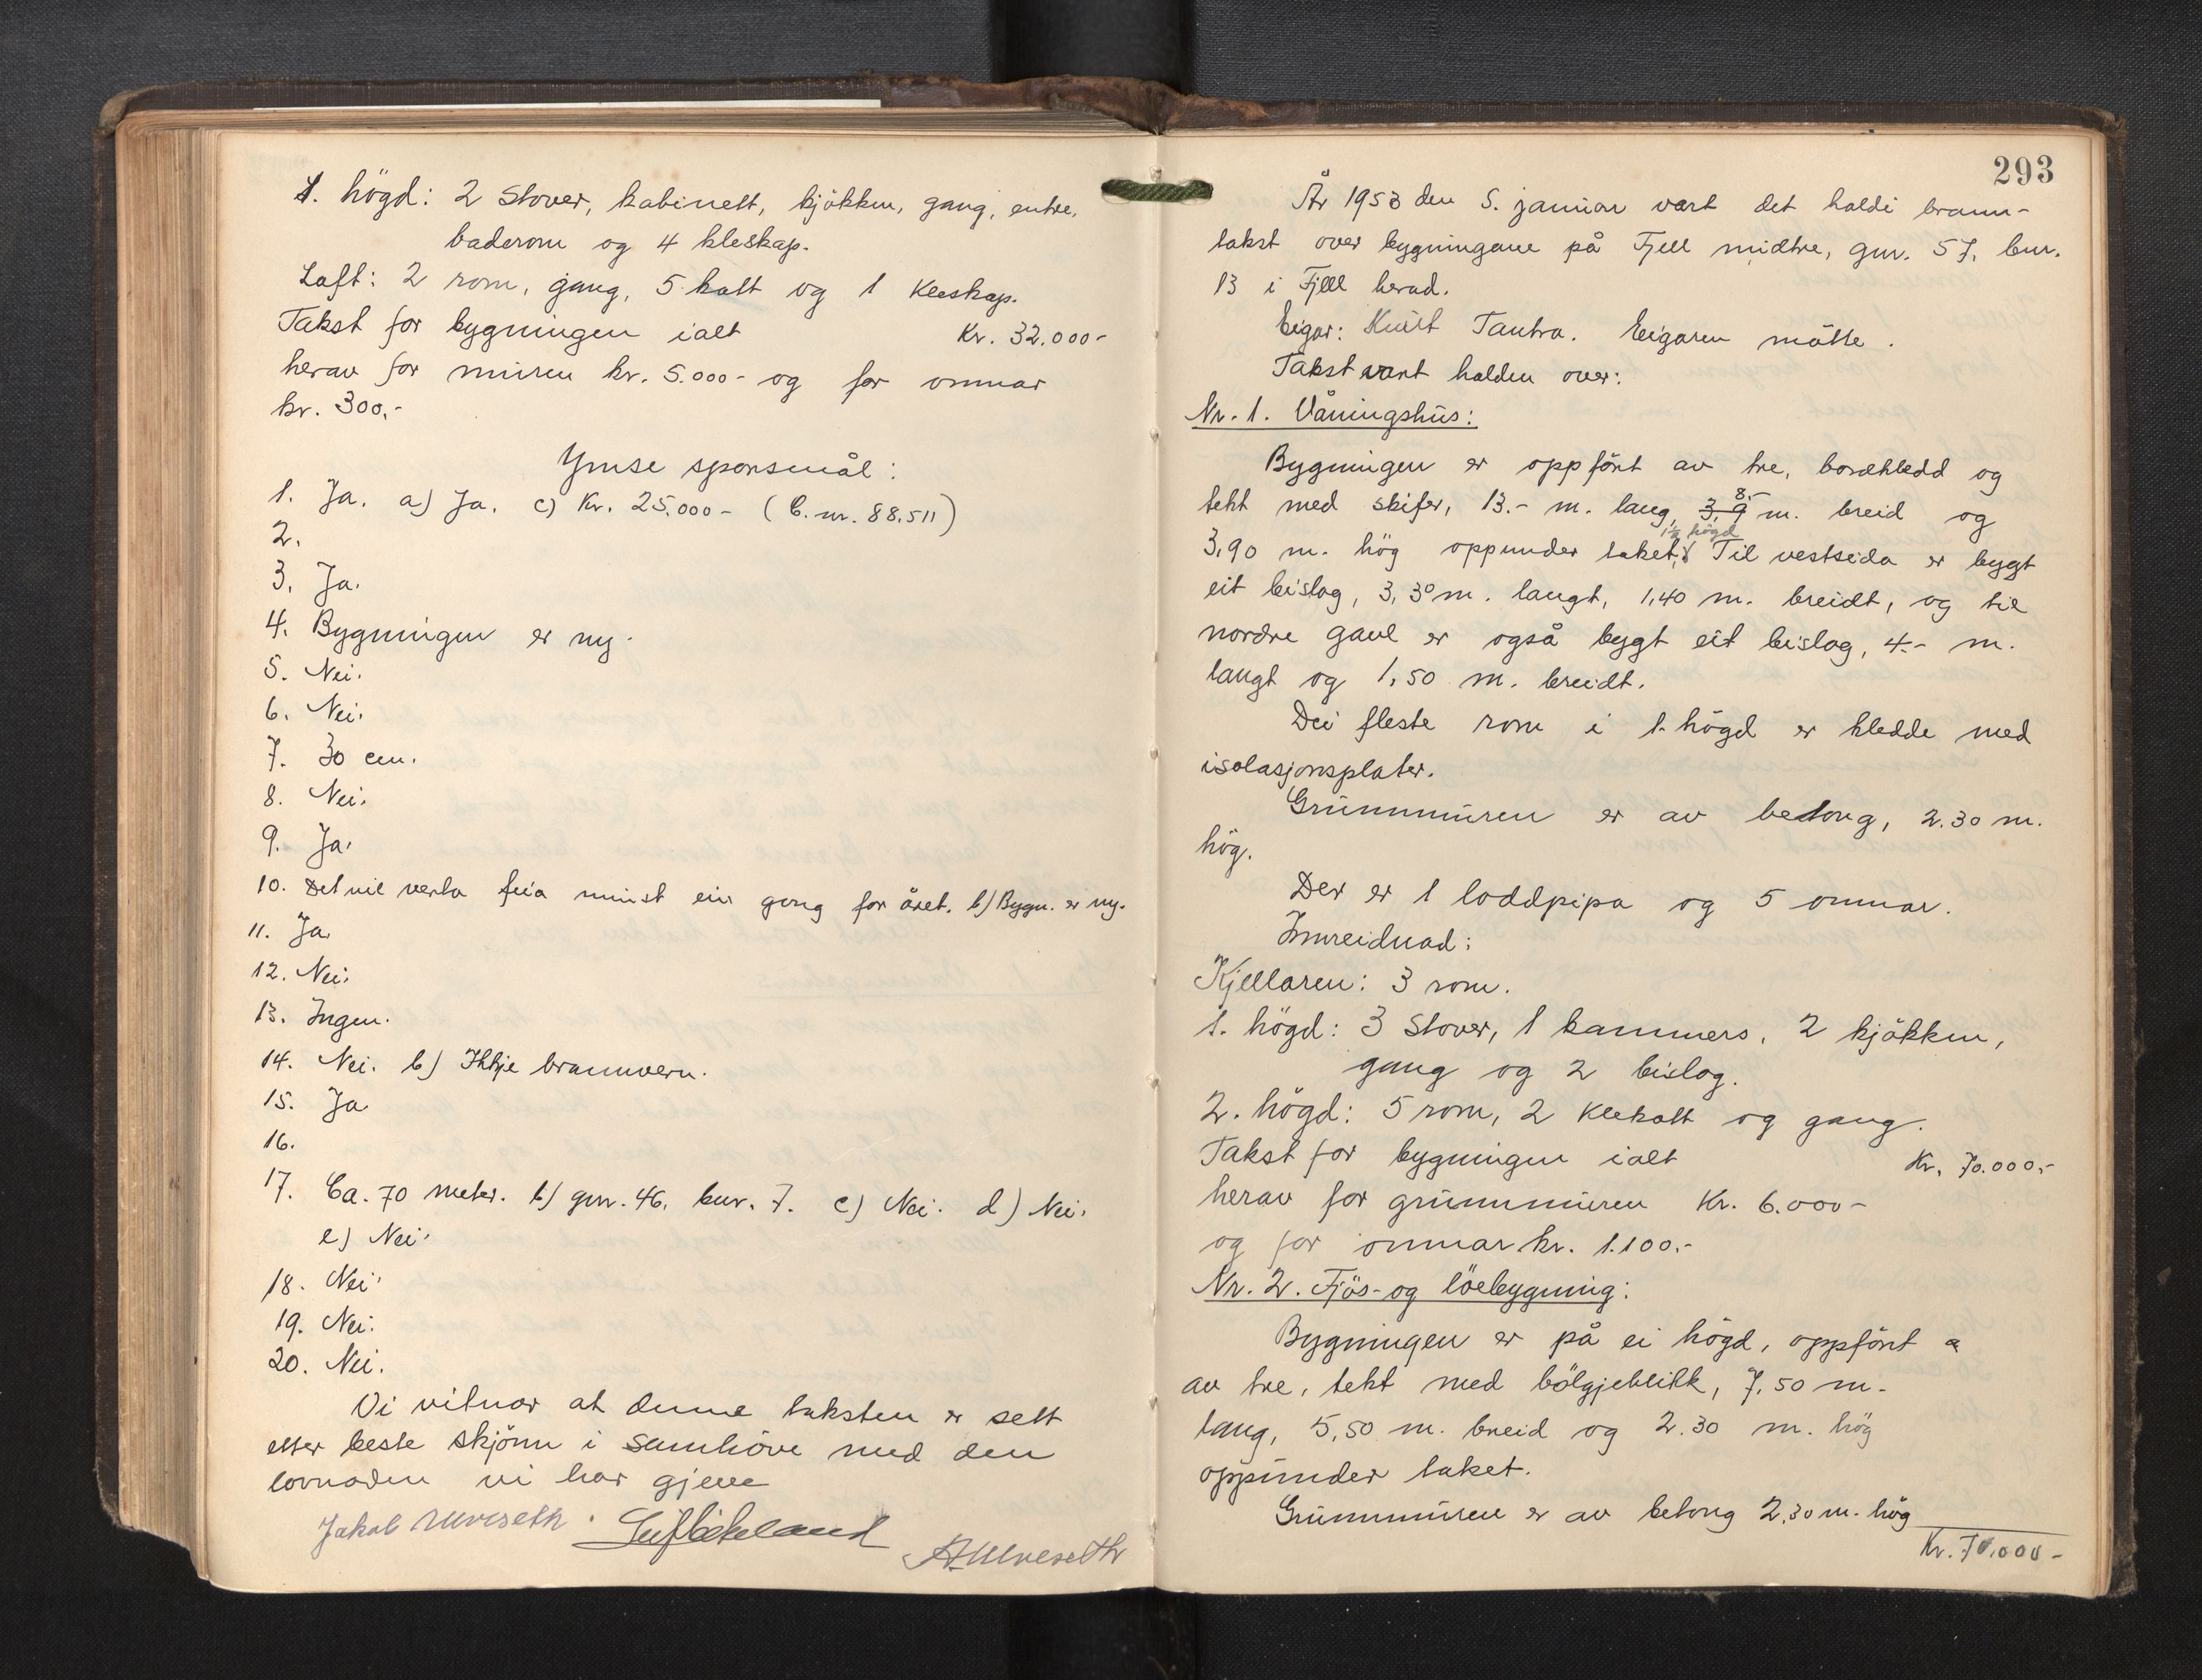 1. högd: 2 stover, kabinett, kjökken, gang, entre,
baderom og 4 kleskap.
Loft: 2 rom, gang, 5 kott og 1 kleskap.
Takst for bygningen ialt Kr. 32.000-
herav for muren kr. 5.000- og for omnar
kr. 300,-
Ymse sporsmål:
1. Ja. a) Ja. c) Kr. 25.000- (B.nr. 88.511)
2.
3. Ja.
4. Bygningen er ny.
5. Nei.
6. Nei.
7. 30 cm.
8. Nei.
9. Ja.
10. Det vil verta feia minst ein gong for året. b) Bygn. er ny.
11. Ja.
12. Nei.
13. Ingen.
14. Nei. b) Ikkje brannvern.
15. Ja
16.
17. Ca. 70 meter. b) gnr. 46. bnr. 7. c) Nei. d) Nei.
e) Nei.
18. Nei.
19. Nei.
20. Nei.
Vi vitnar at denne taksten er sett
etter beste skjönn i samhöve med den
lovnaden vi har gjeve
Jakob Ulveseth. Leif Lökeland
A. Ulveseth
293
År 1953 den 5. januar vart det haldi brann-
takst over bygningane på Fjell midtre, gnr. 57. bnr.
13 i Fjell herad.
Eigar: Knut Tautra. Eigaren mötte.
Takst vart halden over:
Nr. 1. Våningshus:
Bygningen er oppfört av tre, bordkledd og
tekt med skifer, 13.- m. lang, 3,9 8.- m. breid og
3,90 m. hög oppunder taket, 1½ högd Til vestsida er bygt
eit beislag, 3,30 m. langt, 1,40 m. breidt, og til
nordre gavl er også bygt eit beislag, 4.- m.
langt og 1,50 m. breidt.
Dei fleste rom i 1. högd er kledde med
isolasjonsplater.
Grunnmuren er av betong, 2.30 m.
hög.
Der er 1 loddpipa og 5 omnar.
Innreidnad:
Kjellaren: 3 rom.
1. högd: 3 stover, 1 kammers, 2 kjökken,
gang og 2 bislag.
2. högd: 5 rom, 2 klekott og gang.
Takst for bygningen ialt Kr. 70.000,-
herav for grunnmuren Kr. 6.000-
og for omnar kr. 1.100.-
Nr. 2. Fjös- og löebygning:
Bygningen er på ei högd, oppfört a
av tre, tekt med bölgjeblikk, 7,50 m.
lang, 5,50 m. breid og 2.30 m. hög
oppunder taket.
Grunnmuren er av betong 2,30 m. hög
Kr. 70.000-